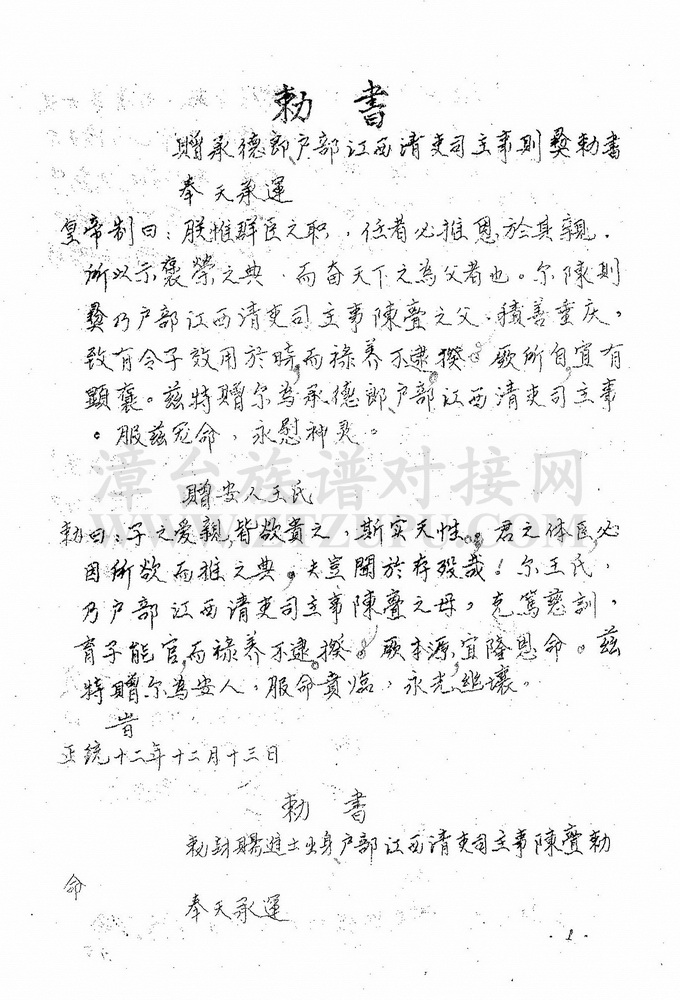 勅 書
贈承德郎戶部江西清吏司主事則彝勅書
奉天承運
皇帝制曰：朕惟群臣之职，任者必推恩於其親，
所以示褒榮之典，而奋天下之為父者也。尔陳則
彝乃户部江西清吏司主事陳亹之父，積善重庆，
致有令子效用於時，而禄养不逮，揆厥所自宜有
顕褒。兹特贈尔為承德郎户部江西清吏司主事
。服兹冠命，永慰神灵。
贈安人王氏
勅曰：子之爱親，皆欲貴之，斯实天性。君之体臣必
因所欲而推之典。夫豈關於存殁哉！尔王氏，
乃户部江西清吏司主事陳亹之母，克篤慈訓，
育子能官，而禄养不逮，揆厥本源，宜隆恩命。兹
特贈尔為安人，服命賁臨，永光幽壤。
正统十二年十二月十三日
勅 書
勅封賜進士出身户部江西清吏司主事陳亹勅
命
奉天承運
·1·
漳台族谱对接网